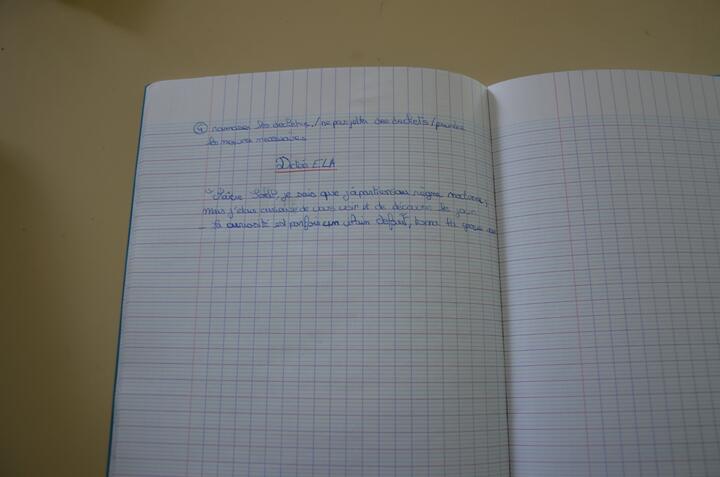 ④ ramasser les déchets / ne pas jeter des déchets / prendre
les mesures nécessaires
Dictée ELA
"Maître Soleil, je sais que j'appartiens au règne nocturne,
mais j'étais curieuse de vous voir et de découvrir le jour.
_ ta curiosité est parfois un vilain défaut,